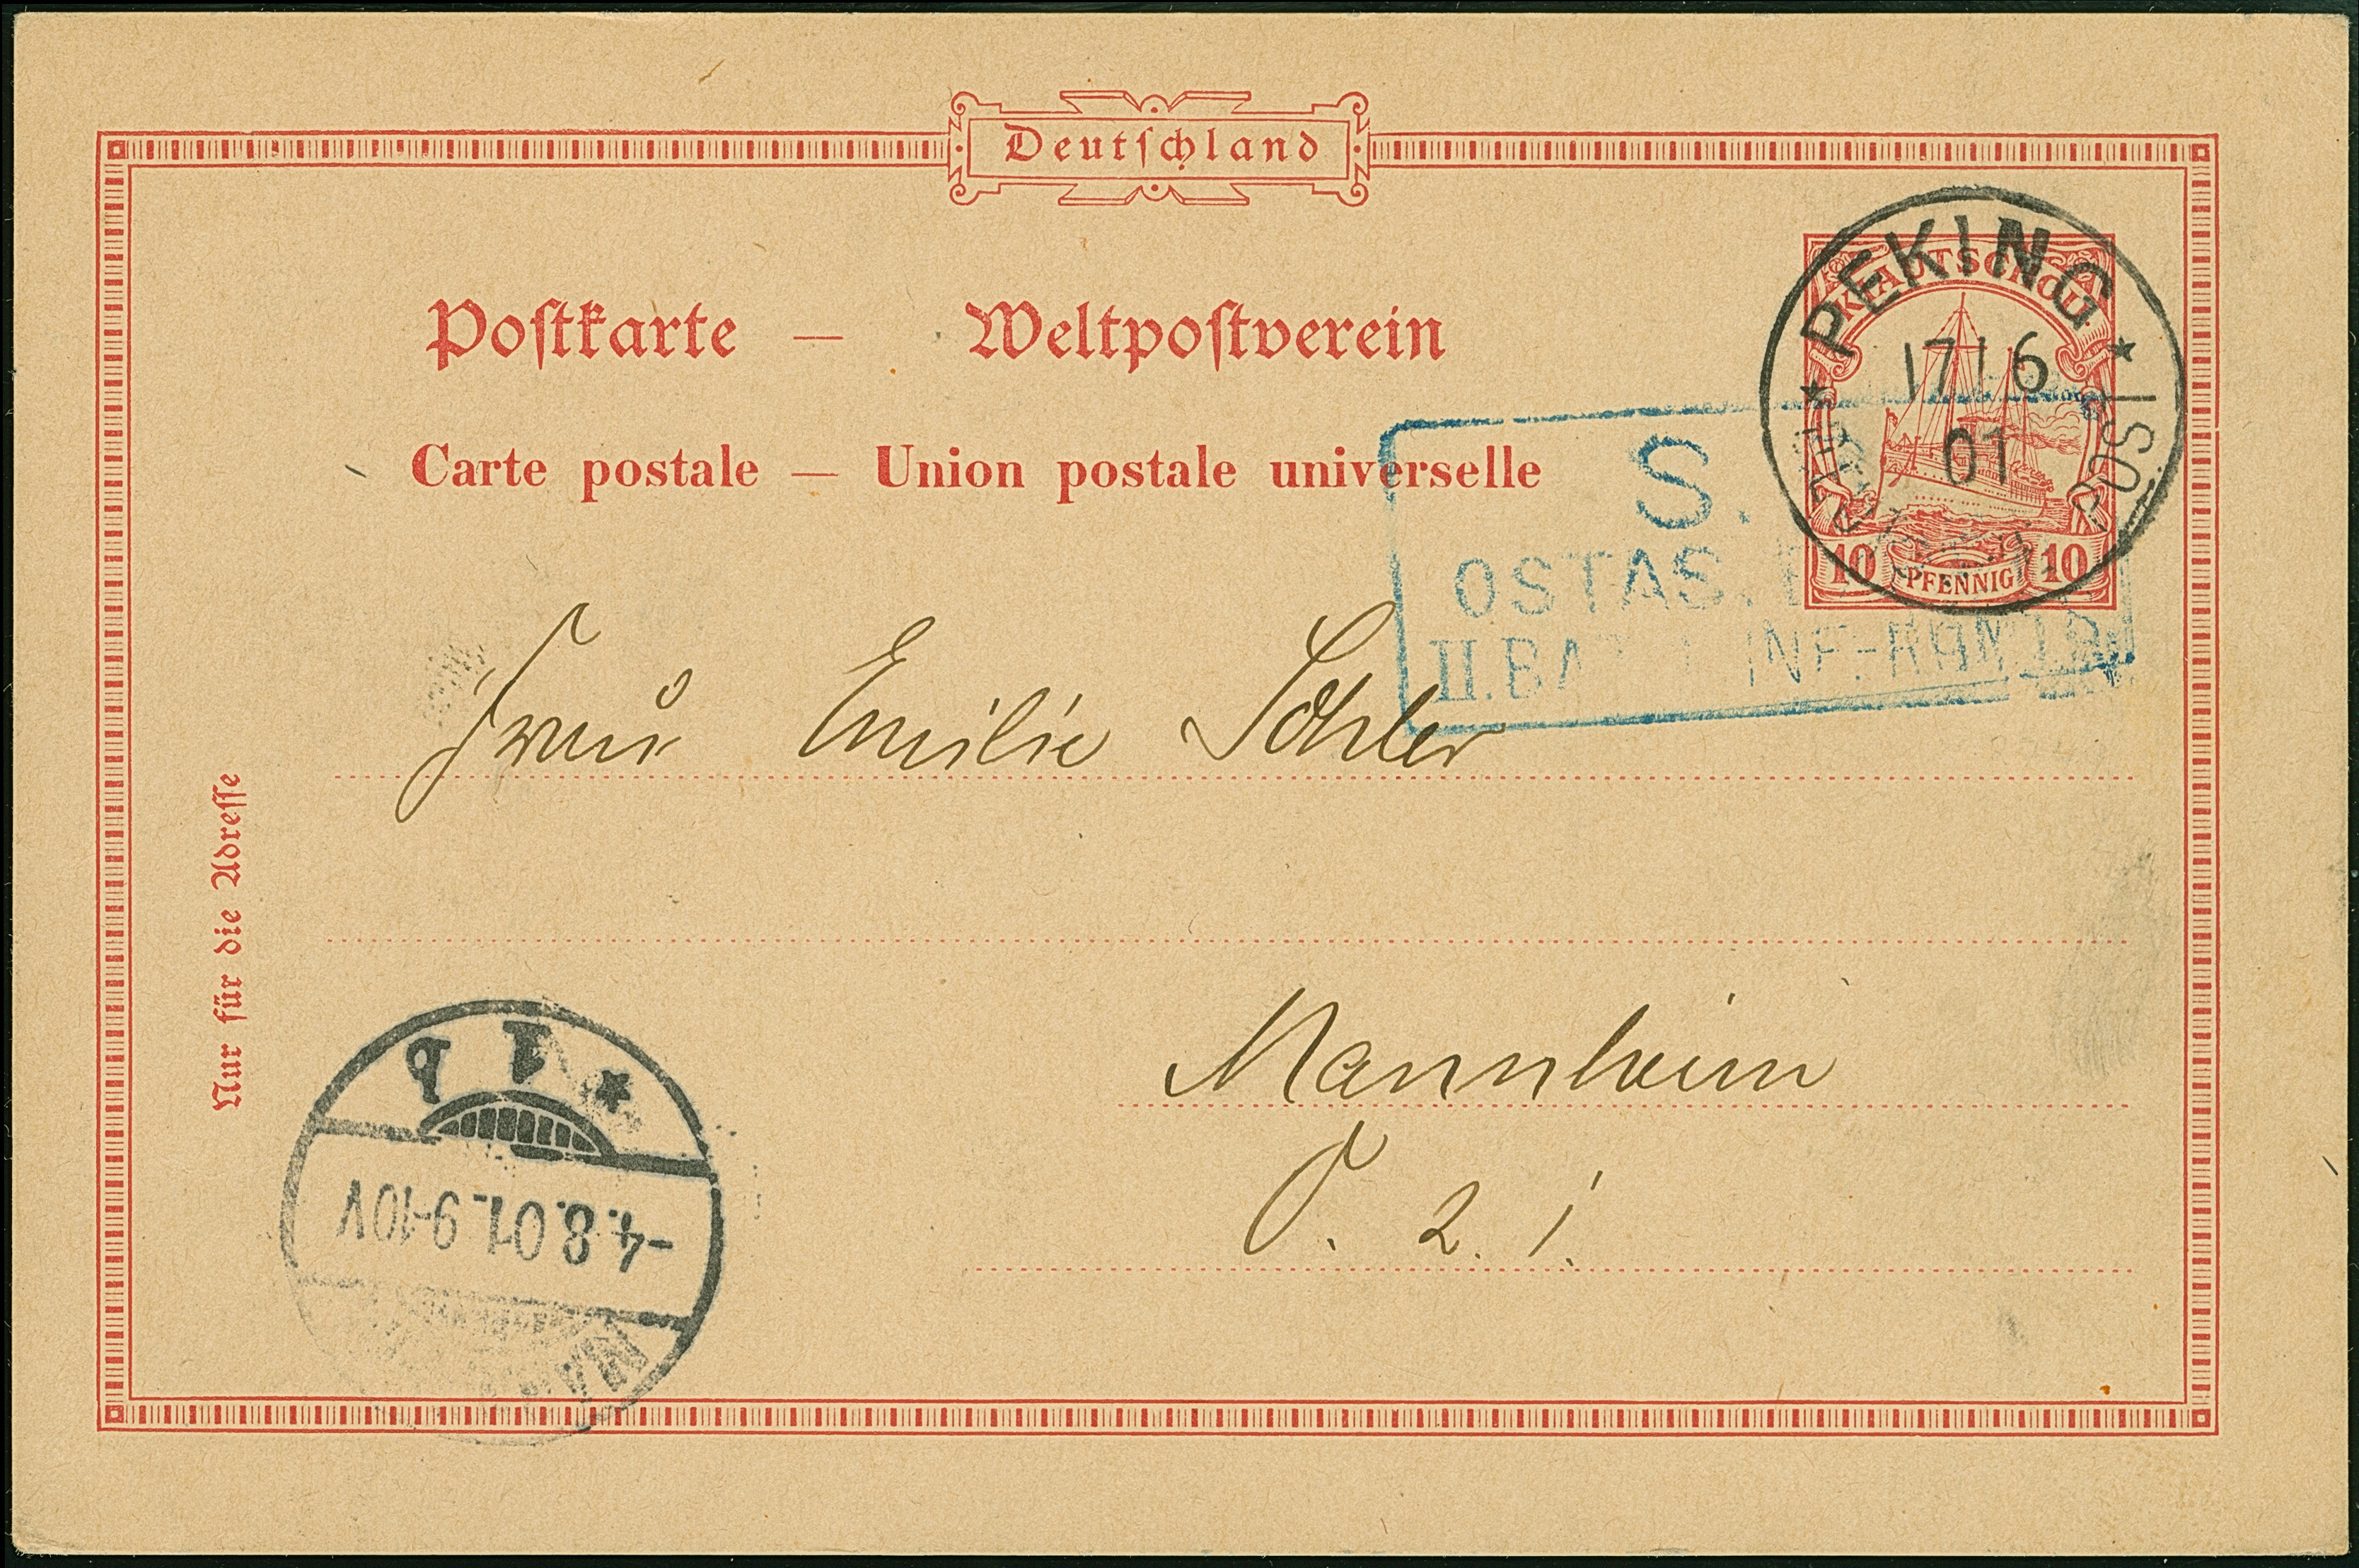 Deutschland
Postkarte — Weltpostverein
Carte postale — Union postale universelle
KIAUTSCHOU
10 PFENNIG 10
PEKING
17/6
01
S.
OSTAS.
II. BAT INF.-
Frau Emilie
Mannheim
2. 1.
Nur für die Adresse
* 1 b
-4.8.01.9-10V